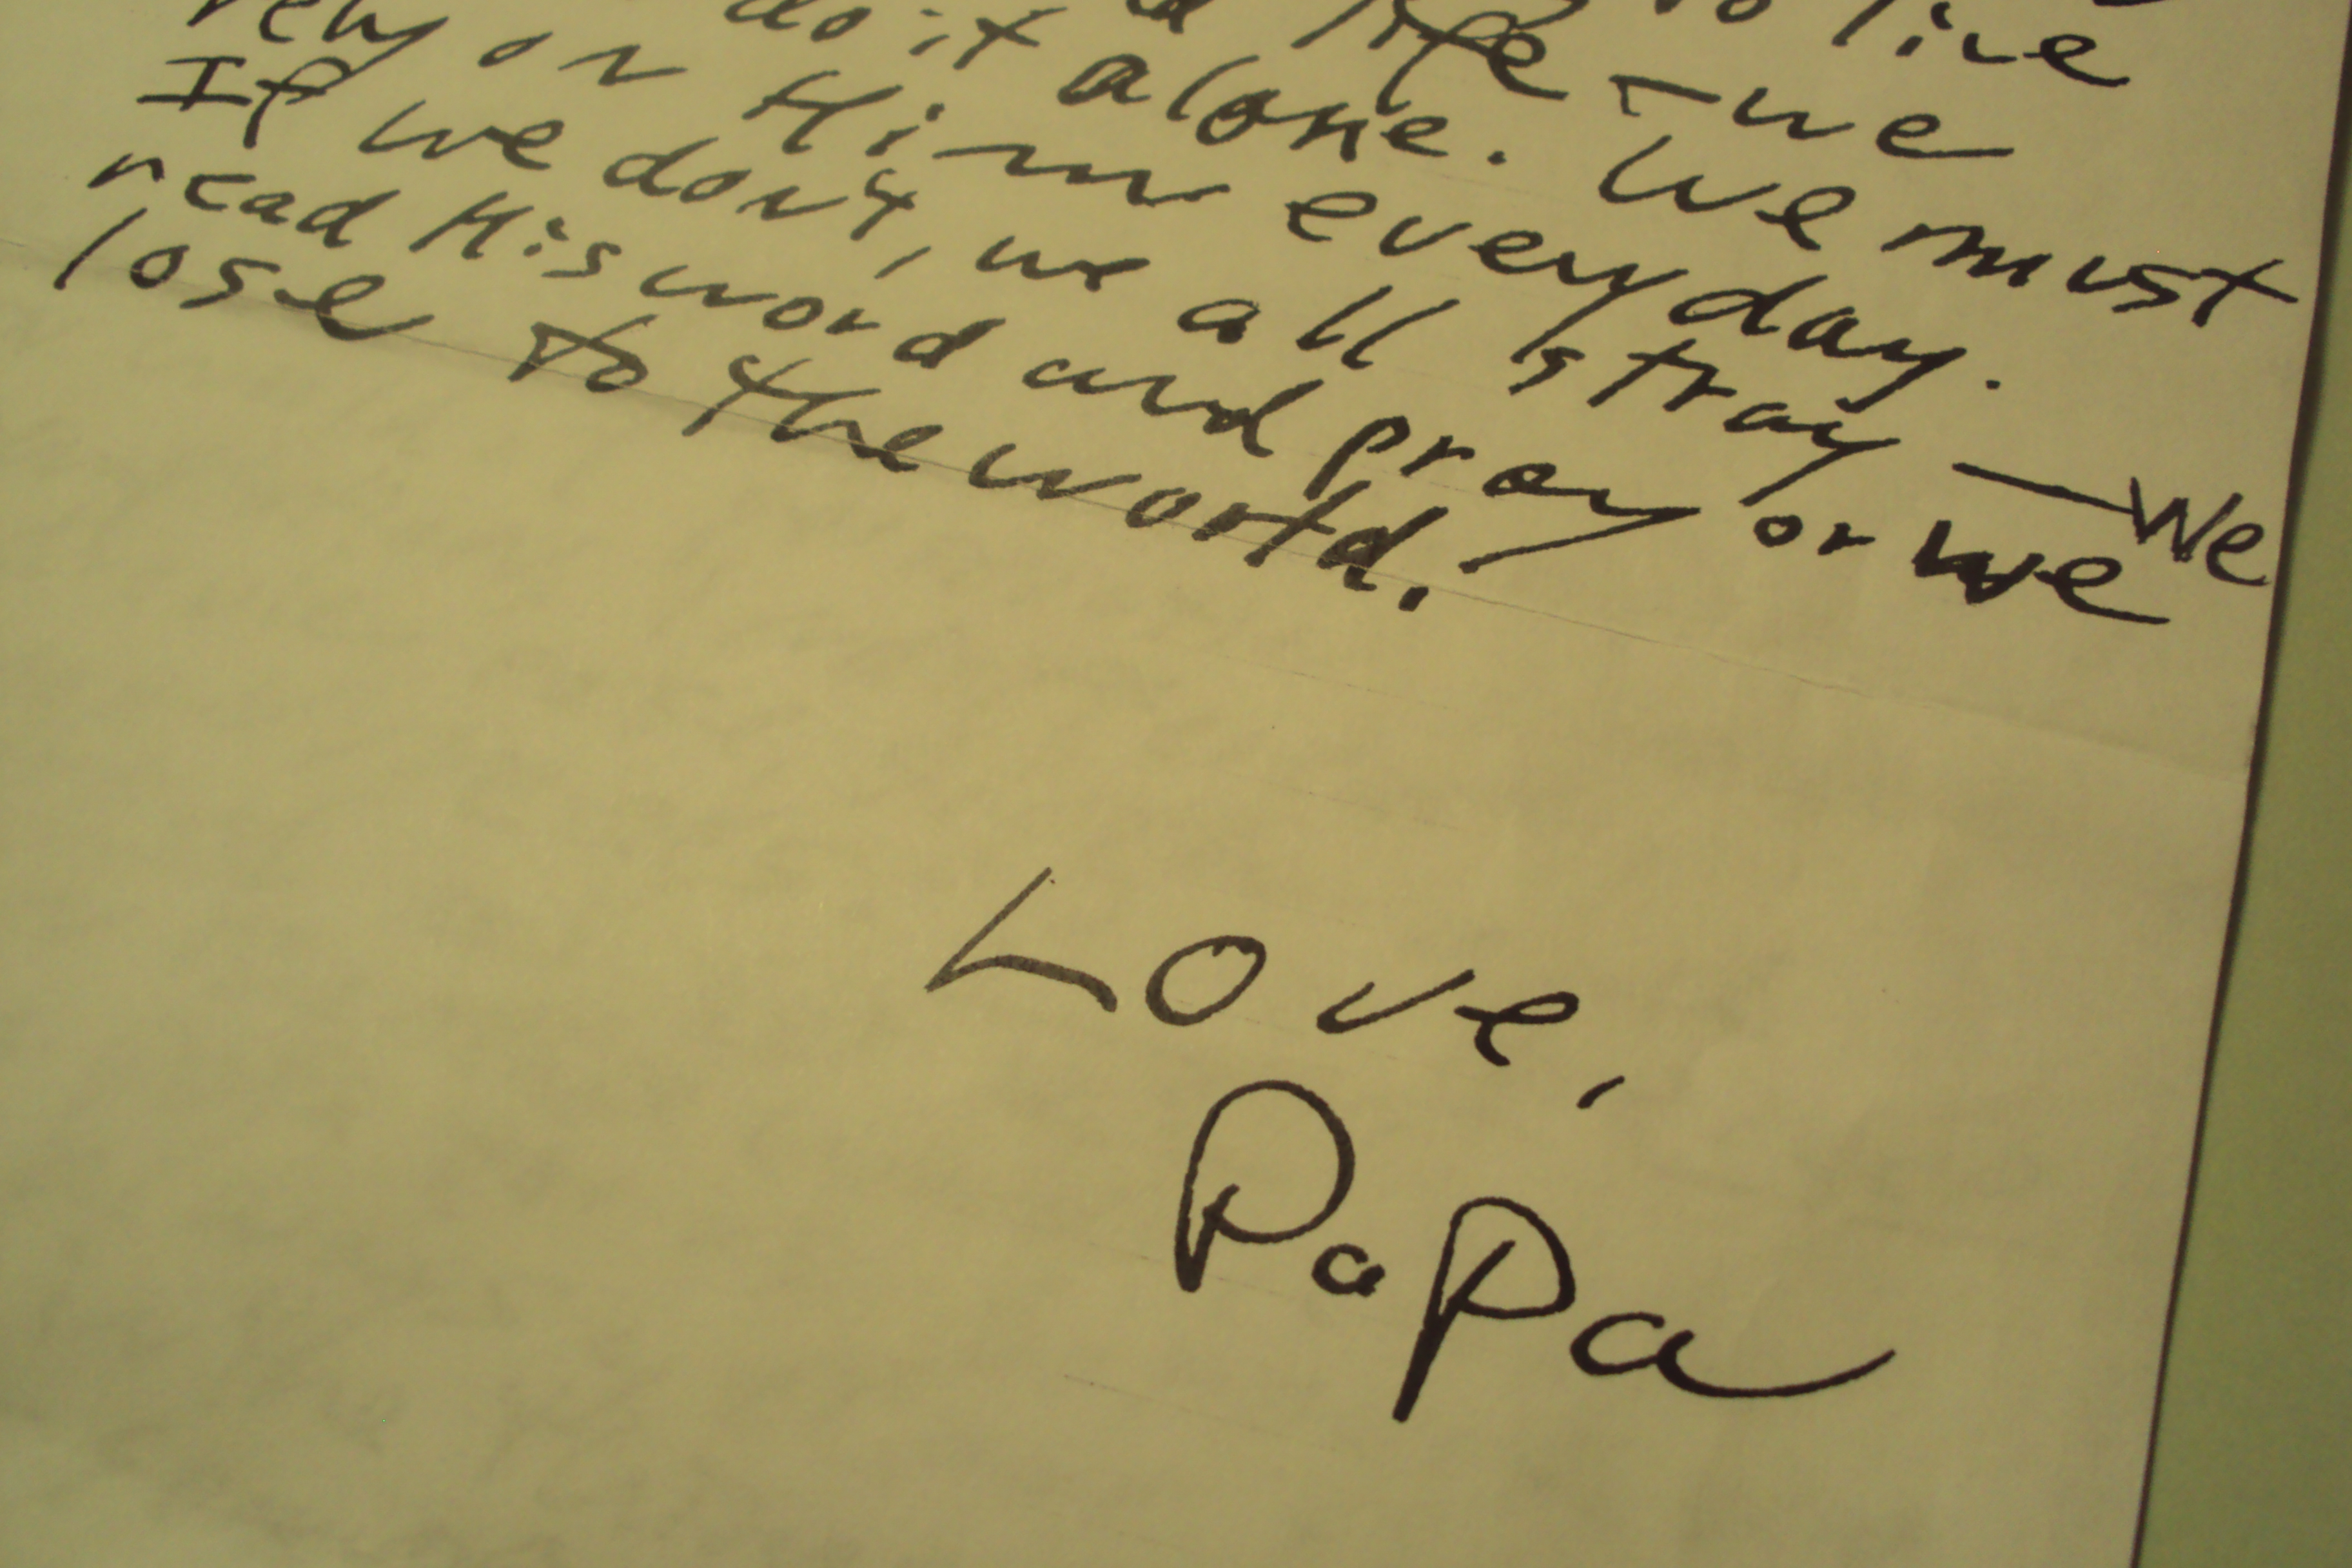 to live
do it life - we
alone. We must
rely on Him every day.
If we don't, we all stray - We
read His word and pray or we
lose to the world.
Love,
PaPa